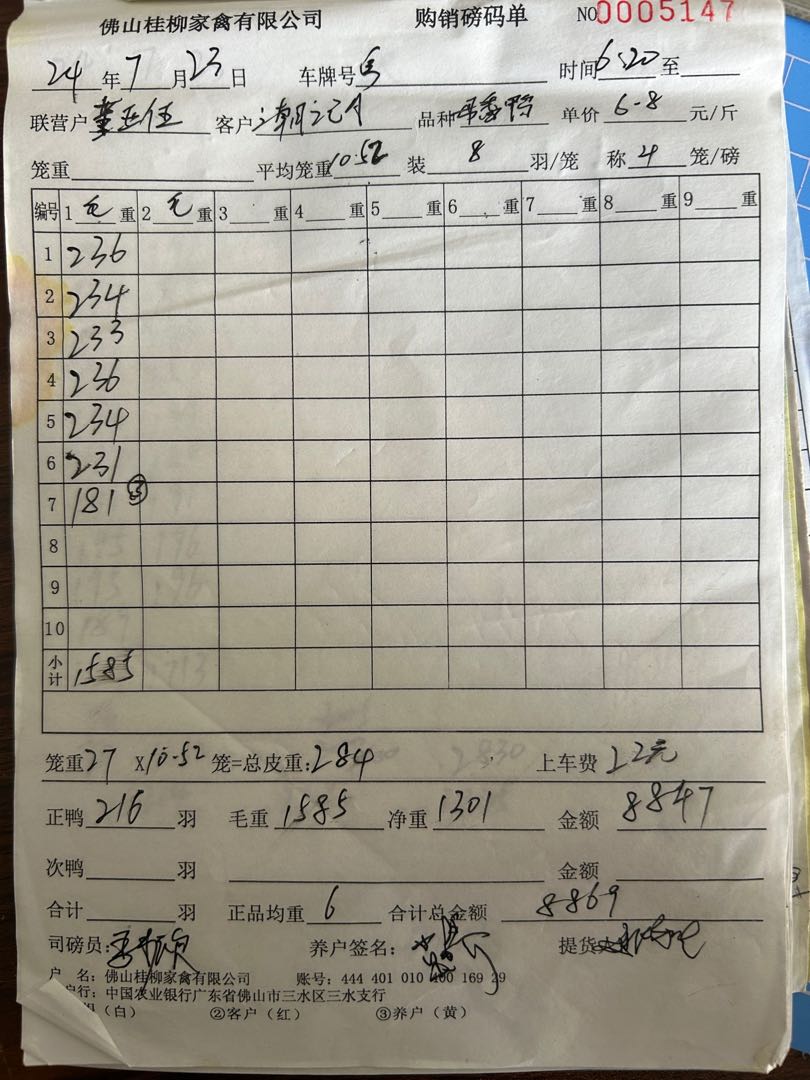 佛山桂柳家禽有限公司 购销磅码单 NO0005147
24年7月23日 车牌号 时间6:20至
联营户 客户 品种 单价6-8元/斤
笼重 平均笼重10.52 装8羽/笼 称4笼/磅
编号 1毛重 2毛重 3重 4重 5重 6重 7重 8重 9重
1 236
2 234
3 233
4 236
5 234
6 231
7 181 ③
8
9
10
小计 1585
笼重27 X10.52笼=总皮重:284 上车费22元
正鸭216羽 毛重1585 净重1301 金额8847
次鸭羽 金额
合计羽 正品均重6 合计总金额8869
司磅员: 养户签名: 提货
户 名:佛山桂柳家禽有限公司 账号:444 401 010 400 169 29
户行:中国农业银行广东省佛山市三水区三水支行
(白) ②客户(红) ③养户(黄)